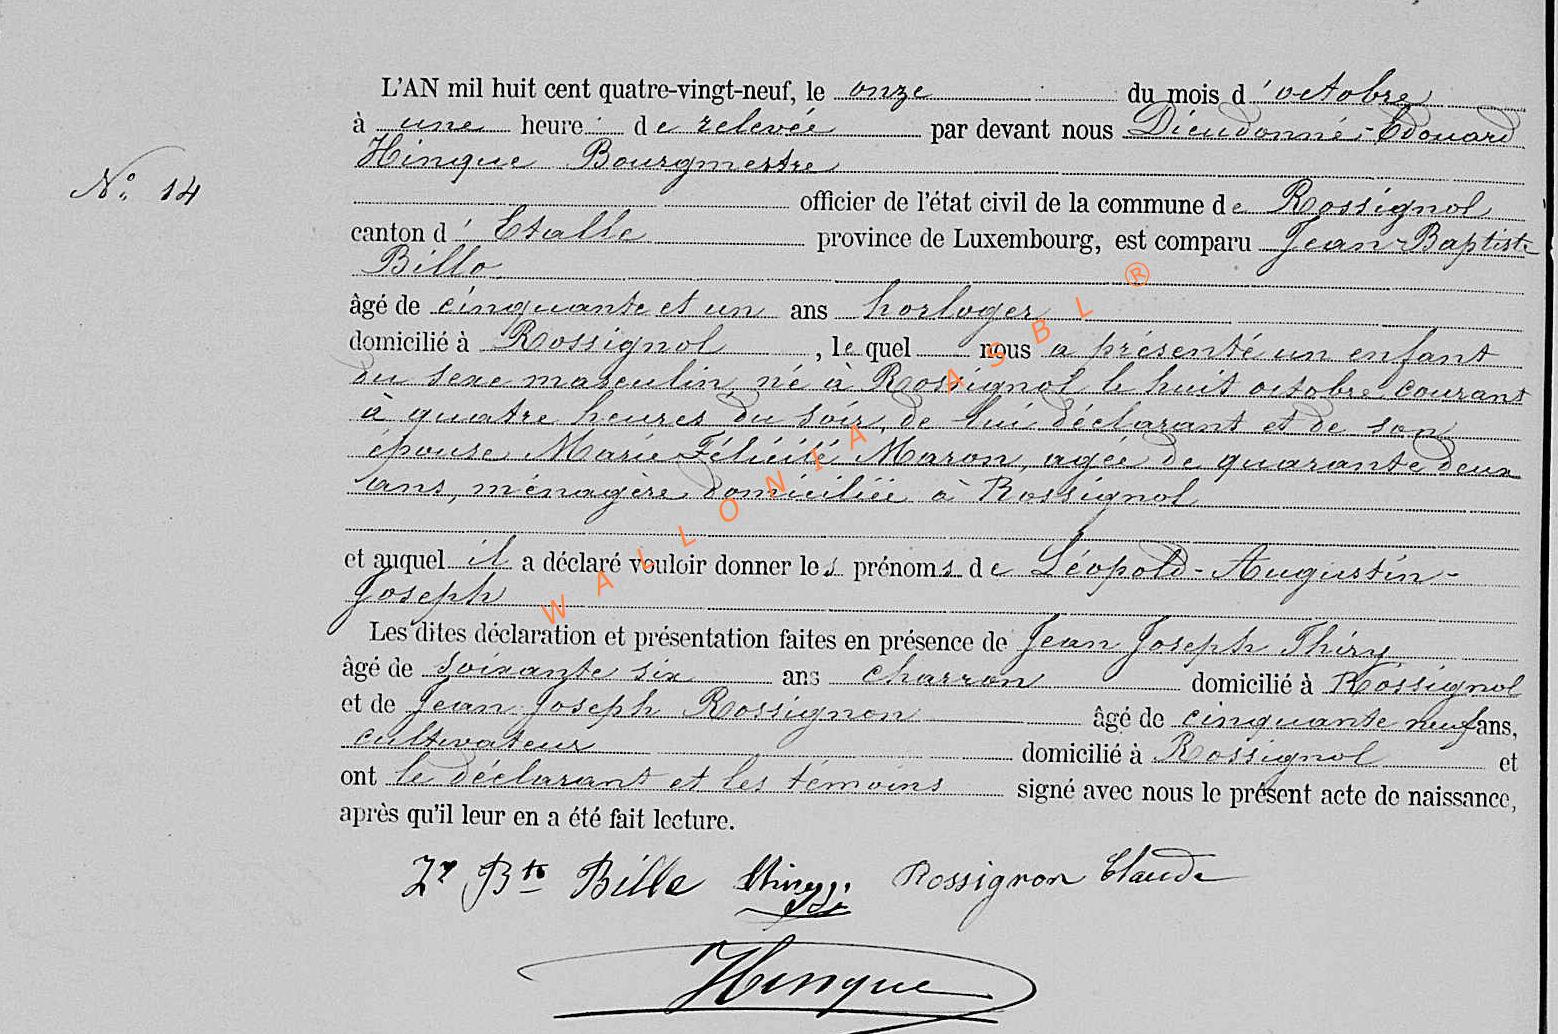 L'AN mil huit cent quatre-vingt-neuf, le onze du mois d'octobre
à une heure de relevée par devant nous Dieudonné-Edouard
Hinque Bourgmestre
N° 14
officier de l'état civil de la commune de Rossignol
canton d'Etalle province de Luxembourg, est comparu Jean-Baptiste
Bille
âgé de cinquante et un ans horloger
domicilié à Rossignol, le quel nous a présenté un enfant
du sexe masculin, né à Rossignol le huit octobre courant
à quatre heures du soir, de lui déclarant et de son
épouse Marie Félicité Maron, agée de quarante deux
ans, ménagère domiciliée à Rossignol
et auquel il a déclaré vouloir donner les prénoms de Léopold-Augustin-
Joseph
Les dites déclaration et présentation faites en présence de Jean Joseph Thiry
âgé de soixante six ans charron domicilié à Rossignol
et de Jean-Joseph Rossignon âgé de cinquante neuf ans,
cultivateur domicilié à Rossignol et
ont le déclarant et les témoins signé avec nous le présent acte de naissance,
après qu'il leur en a été fait lecture.
Bte Bille Rossignon Claude
Hinque
WALLONIA ASBL ®